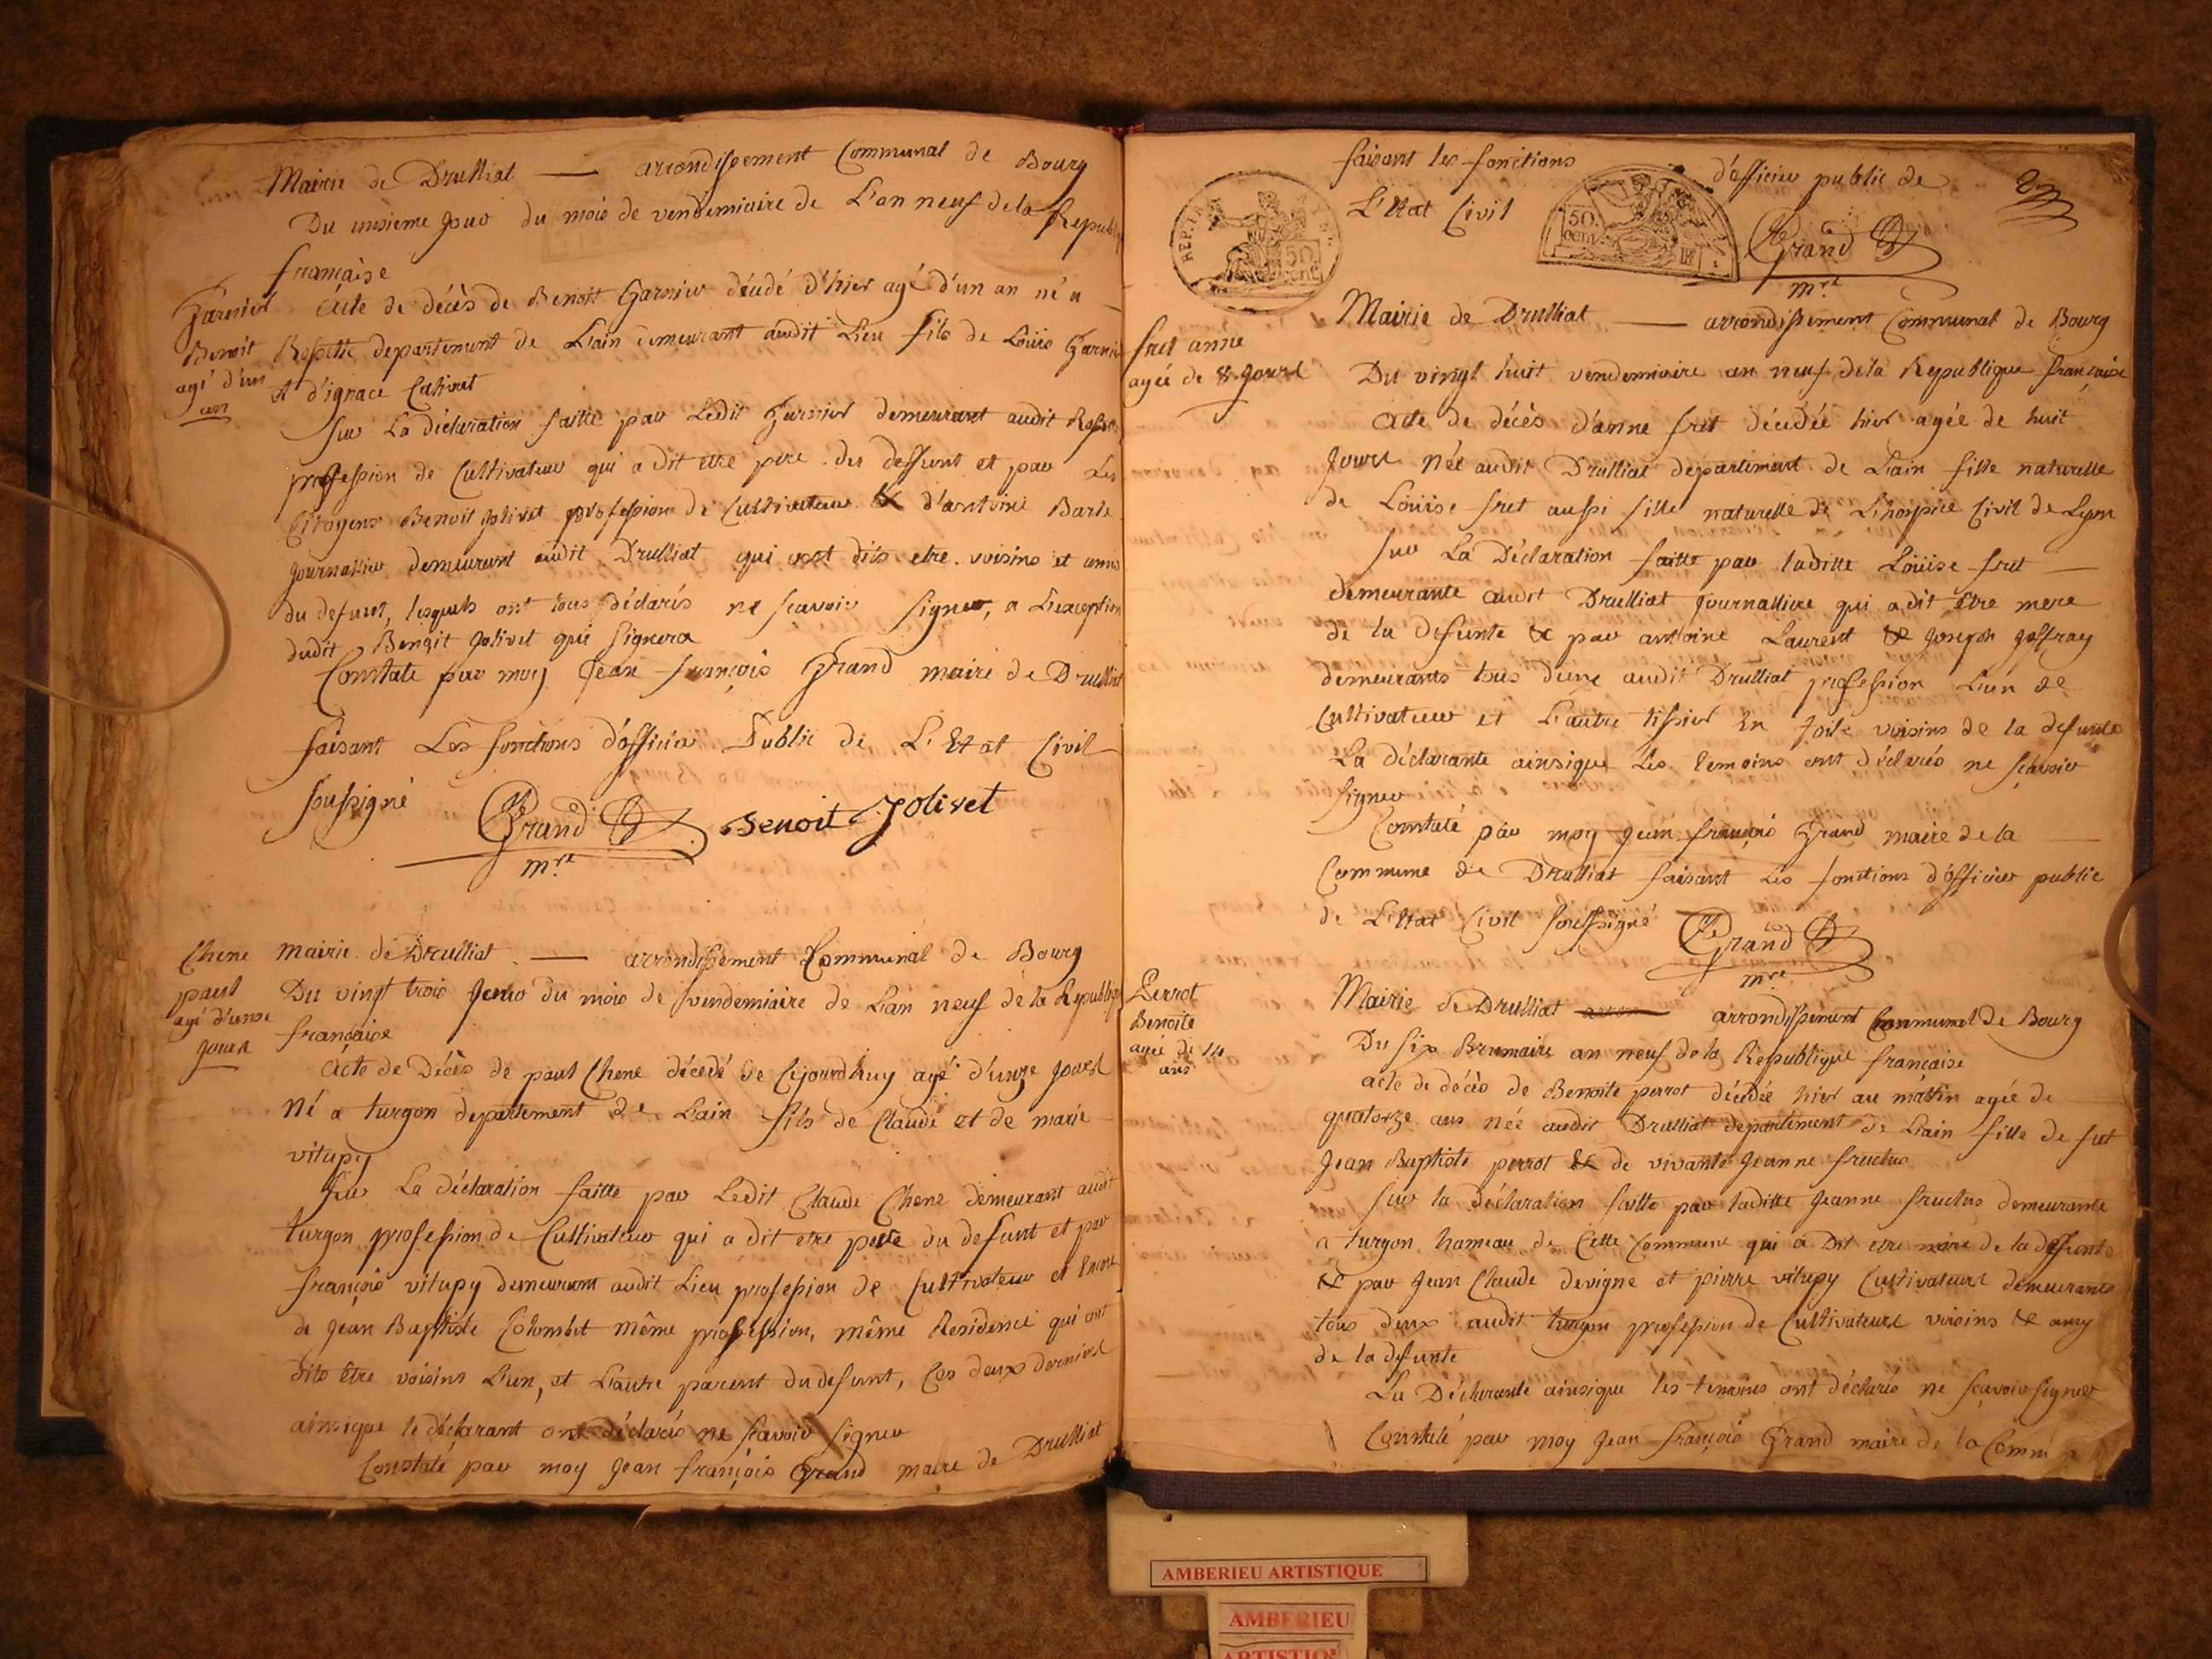 Mairie de Drulliat — arrondissement Communal de Bourg
Du unsieme jour du mois de vendemiaire de L'an neuf de la Republiq
française
Garnier
Benoit
agé d'un
an
Acte de décès de Benoit Garnier décédé d'hier agé d'un an né a
Rossette departement de L'ain demeurant audit Lieu fils de Loüis Garnier
et d'ignace Calivet
Sur La déclaration faitte par Ledit Garnier demeurant audit
profession de Cultivateur qui a dit etre pere du deffunt et par Les
Citoyens Benoit jolivet profession de Cultivateur & d'antoine Barle
journallier demeurant audit Drulliat qui ont dits etre voisins et amis
du defunt, lesquels ont tous déclarés ne scavoir signer, a L'exception
dudit Benoit jolivet qui signera
Constaté par moy Jean françois Grand maire de Drulliat
faisant Les fonctions d'officier Public de L'Etat Civil
soussigné Grand Benoit Jolivet
m.re
Chene
paul
agé d'unze
jours
Mairie de Drulliat — arrondissement Communal de Bourg
Du vingt trois jour du mois de vendemiaire de L'an neuf de la Republiq
française
Acte de Décès de paul Chene décedé de Cejourdhuy agé d'unze jours
Né a turgon departement de L'ain fils de Claude et de marie
vitupy
Sur La déclaration faitte par Ledit Claude Chene demeurant audit
turgon profession de Cultivateur qui a dit etre pere du defunt et par
françois vitupy demeurant audit Lieu profession de Cultivateur et Encore
de jean Baptiste Colombet même profession, même Residence qui ont
dits être voisins L'un, et L'autre parent du defunt, Ces deux derniers
ainsique le déclarant ont déclarés ne scavoir signer
Constaté par moy jean françois Grand maire de Drulliat
faisant les fonctions d'officier public de
L'Etat Civil
REP.
50
cent
50.
cent.
Grand
m.re
fret anne
agée de 8. jours
Mairie de Drulliat — arrondissement Communal de Bourg
Du vingt huit vendemiaire an neuf de la Republique française
Acte de décès d'anne fret décédée hier agée de huit
jours Née audit Drulliat departement de L'ain fille naturelle
de Loüise fret aussi fille naturelle de L'hospice Civil de Lyon
Sur La Déclaration faitte par laditte Loüise fret —
demeurante audit Drulliat journalliere qui a dit être mere
de la defunte & par antoine Laurent & joseph joffray
demeurants tous deux audit Drulliat profession L'un de
Cultivateur et L'autre tissier En toile voisins de la defunte
La déclarante ainsique Les temoins ont déclarés ne sçavoir
signer
Constaté par moy jean françois Grand maire de la
Commune de Drulliat faisant Les fonctions d'officier public
de L'Etat Civil soussigné Grand
m.re
Perrot
Benoite
agée de 14
ans
Mairie de Drulliat arrondissement Communal de Bourg
Du six Brumaire an neuf de la Republique française
acte de décès de Benoite perrot décédée hier au matin agée de
quatorze ans née audit Drulliat departement de L'ain fille de fut
jean Baptiste perrot & de vivante jeanne fructus
Sur la déclaration faitte par laditte jeanne fructus demeurante
a turgon hameau de Cette Commune qui a Dit etre mere de la defunte
& par jean Claude devigne et pierre vitupy Cultivateurs demeurants
tous deux audit turgon profession de Cultivateurs voisins & amy
de la defunte
La Déclarante ainsique les temoins ont déclarés ne sçavoir signer
Constaté par moy jean françois Grand maire de la Comm
AMBERIEU ARTISTIQUE
AMBERIEU
ARTISTIQUE